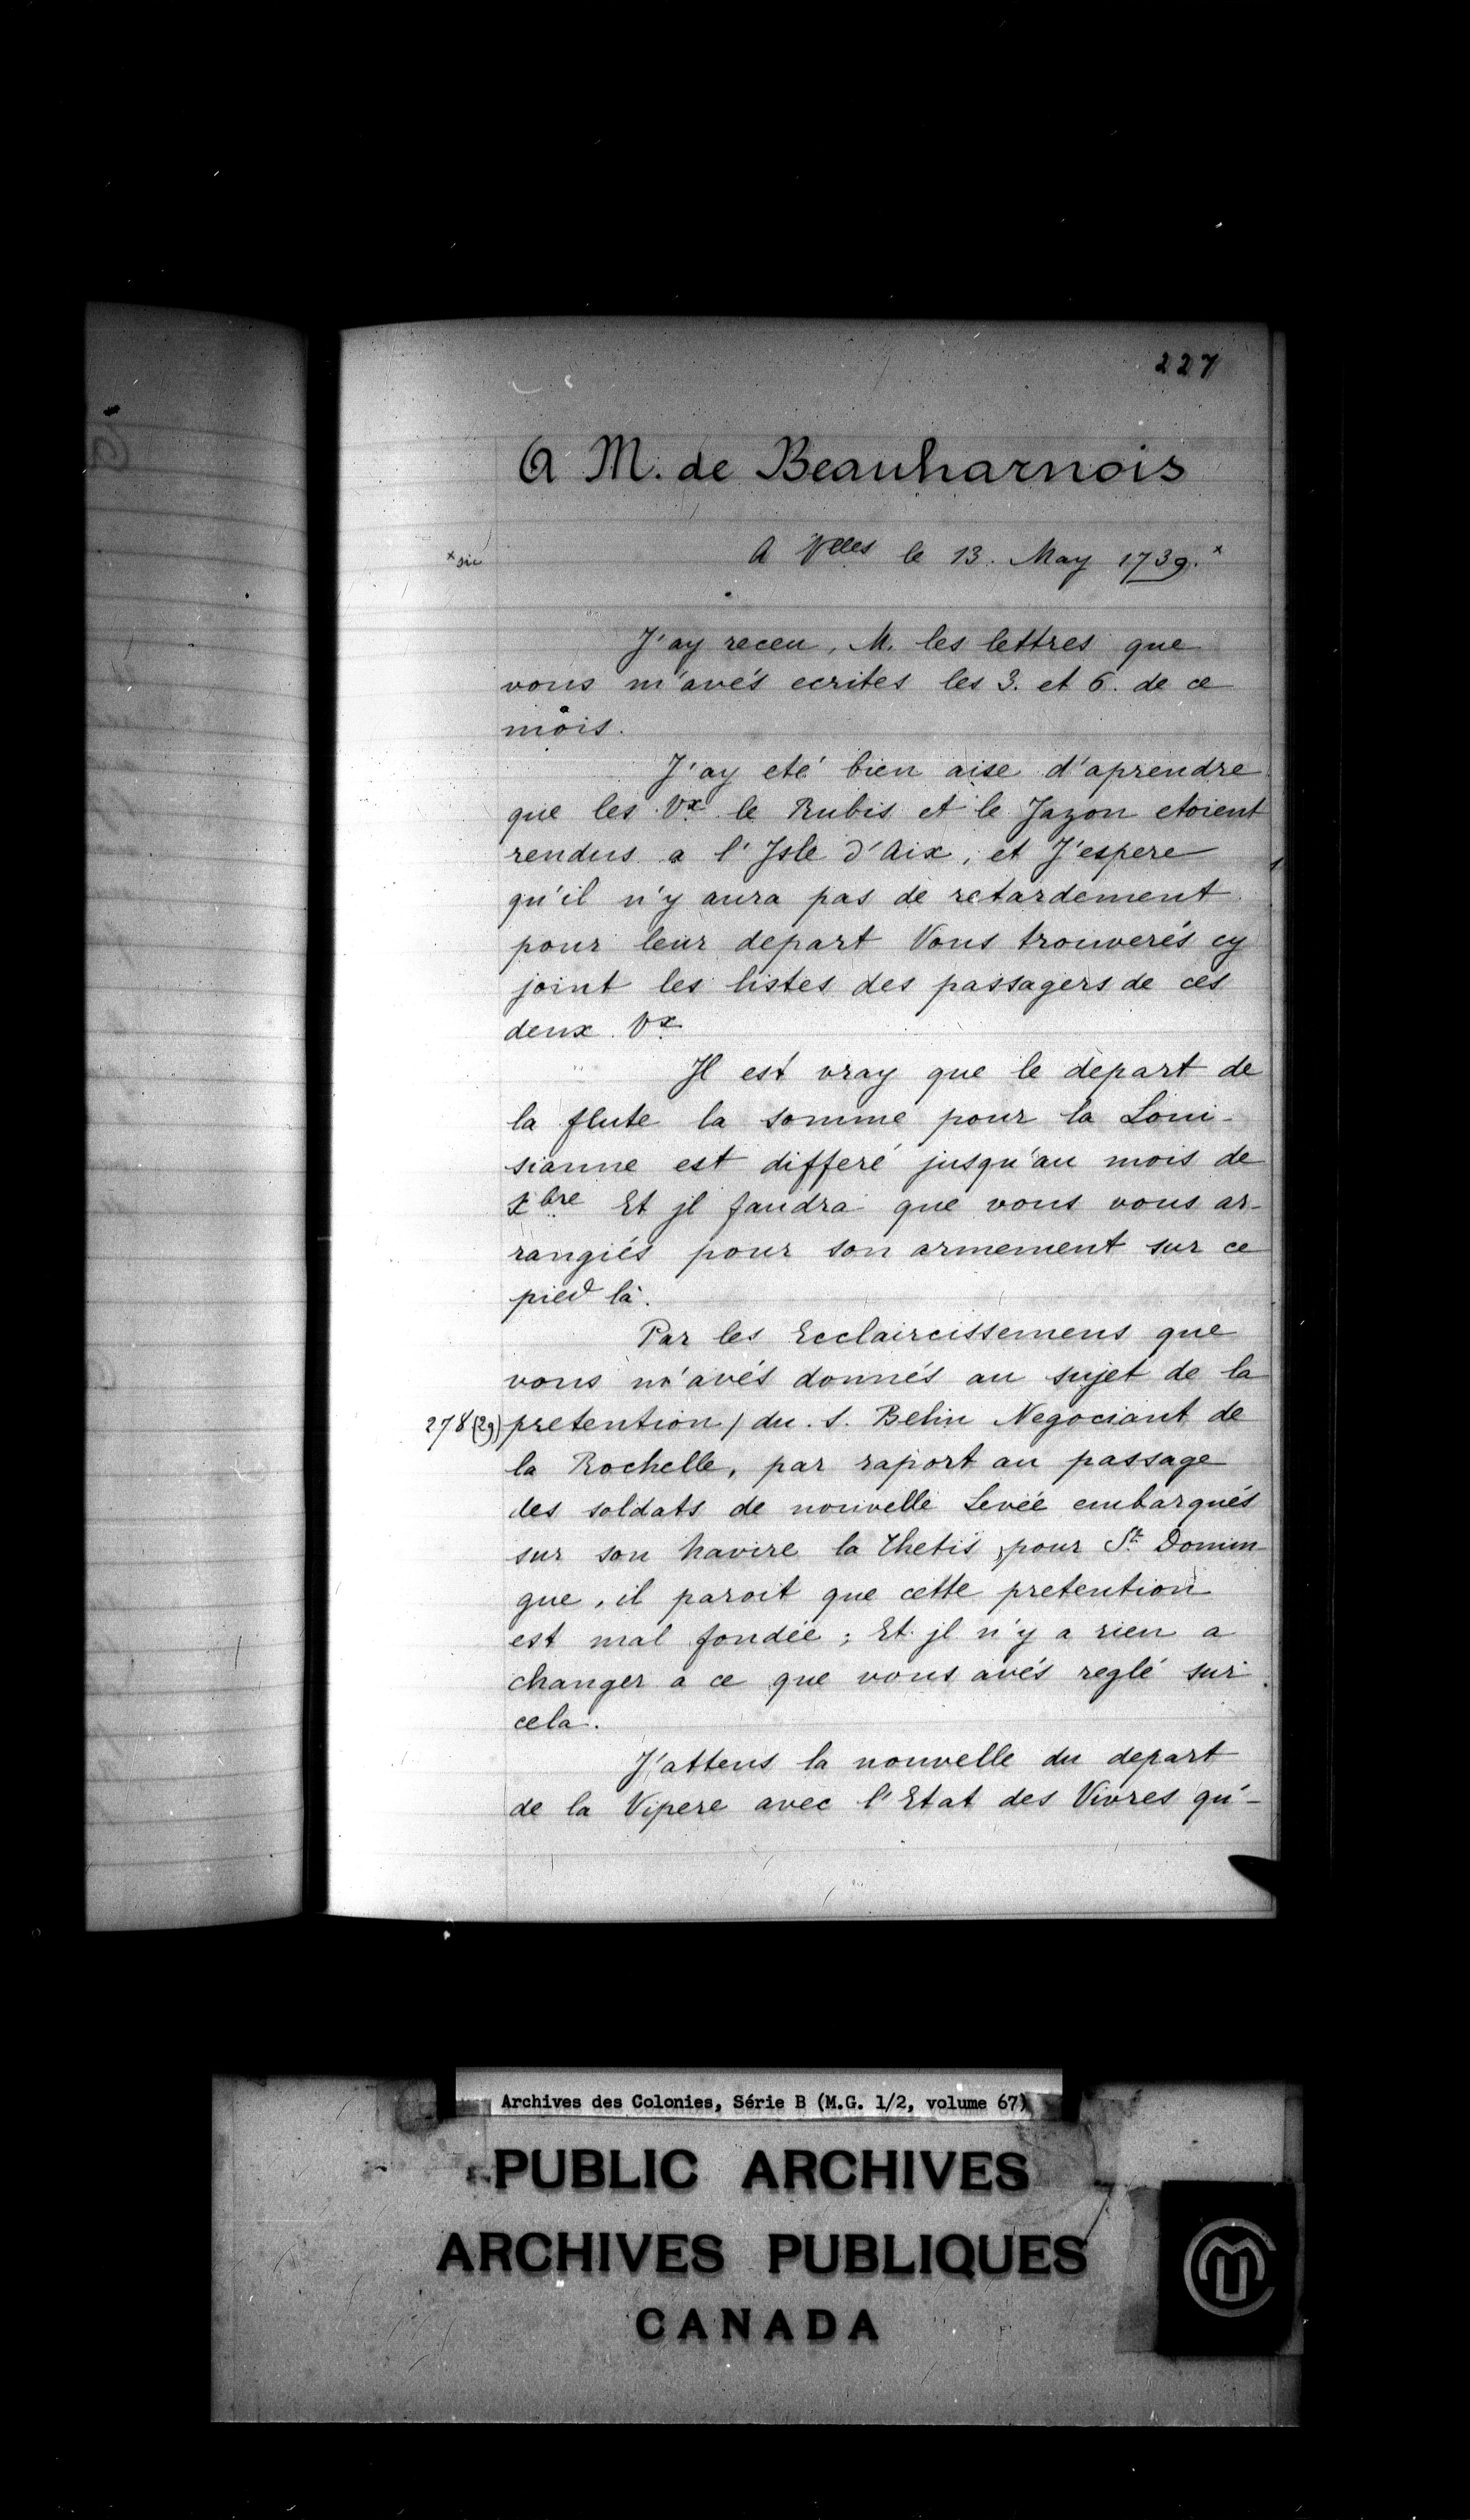 227
A M. de Beauharnois
A Vlles le 13. May 1739.x
x sic
J'ay receu, M. les lettres que
vous m'avés ecrites les 3. et 6. de ce
mois.
J'ay eté bien aise d'aprendre
que les Vx le Rubis et le Jazon etoient
rendus a l'Isle d'Aix, et J'espere
qu'il n'y aura pas de retardement
pour leur depart Vous trouverés cy
joint les listes des passagers de ces
deux Vx
Il est vray que le depart de
la flute la somme pour la Loui-
sianne est differé jusqu'au mois de
xbre Et jl faudra que vous vous ar-
rangiés pour son armement sur ce
pied là.
Par les Ecclaircissemens que
vous m'avés donnés au sujet de la
278 (29) pretention / du S. Belin Negociant de
la Rochelle, par raport au passage
des soldats de nouvelle Levée embarqués
sur son Navire la Thetis pour St. Domin
gue, il paroit que cette pretention
est mal fondée ; Et jl n'y a rien a
changer a ce que vous avés reglé sur
cela.
J'attens la nouvelle du depart
de la Vipere avec l'Etat des Vivres qu'-
Archives des Colonies, Série B (M.G. 1/2, volume 67)
PUBLIC ARCHIVES
ARCHIVES PUBLIQUES
CANADA